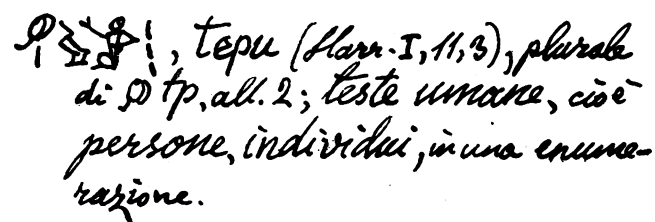 , tepu (Harr. I, 11, 3), plurale
di tp, all. 2; teste umane, cioè
persone, individui, in una enume-
razione.